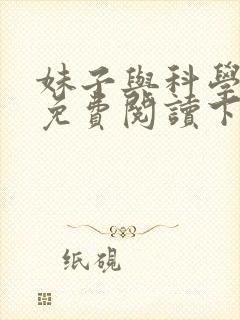 妹子與科學
免費閱讀下
纸硯